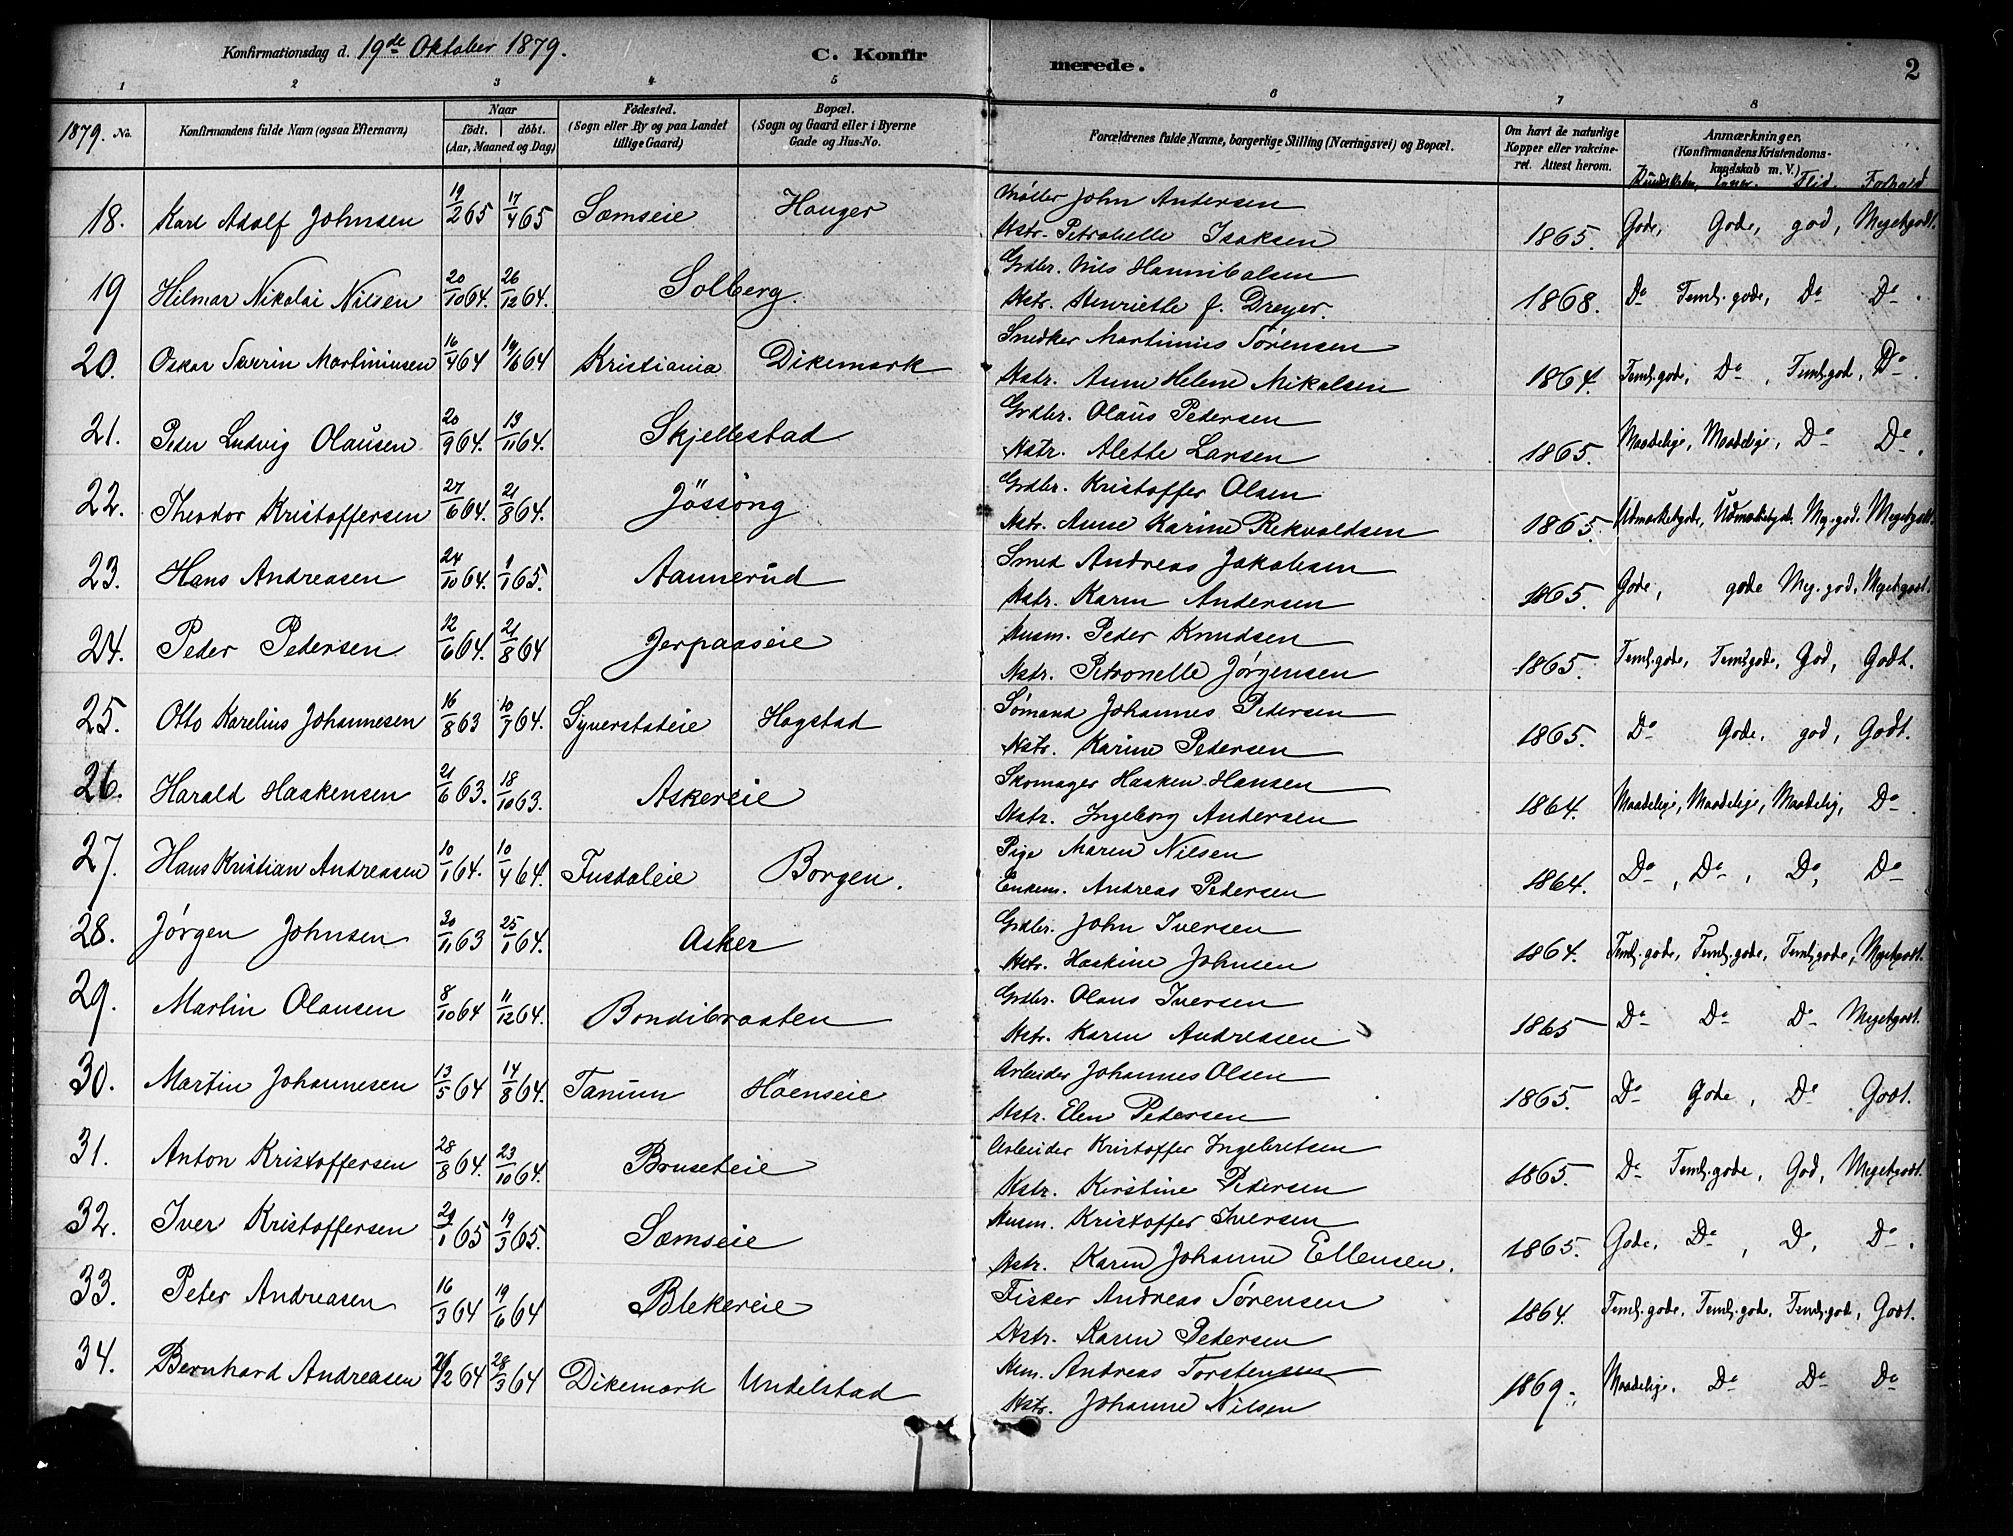 Konfirmationsdag d. 19de Oktober 1879.
C. Konfirmerede.
2
1 2 3 4 5 6 7 8
1879. No.
Konfirmandens fulde Navn (ogsaa Efternavn)
Naar
födt. döbt.
(Aar, Maaned og Dag)
Födested.
(Sogn eller By og paa Landet
tillige Gaard)
Bopæl.
(Sogn og Gaard eller i Byerne
Gade og Hus-No.
Forældrenes fulde Navne, borgerlige Stilling (Næringsvei) og Bopæl.
Om havt de naturlige
Kopper eller vakcine-
ret. Attest herom.
Anmærkninger,
(Konfirmandens Kristendoms-
kundskab m. V.)
Flid. Forhold
18. Karl Adolf Johnsen 19/2 65 17/4 65 Sæmseie Hauger Møller John Andersen
Hstr. Petronelle Isaksen 1865. Gode, Gode, god, Megetgodt.
19 Hilmar Nikolai Nilsen 20/10 64. 26/12 64. Solberg Grdbr. Nils Hannibalsen
Hstr. Henriette J. Dreyer. 1868. Do Teml. gode, Do Do
20. Oskar Severin Martiniusen 16/4 64 19/6 64 Kristiania Dikemark Snedker Martinius Sörensen
Hstr. Anne Helene Nikolsen 1864. Teml. gode, Do, Teml. god, Do
21. Peder Ludvig Olausen 20/9 64. 13/11 64. Skjellestad Grdbr. Olaus Pedersen
Hstr. Alette Larsen 1865. Maadelige, Maadelige, Do Do
22. Theodor Kristoffersen 27/6 64. 21/8 64. Jössong Grdbr. Kristoffer Olsen
Hstr. Anne Karine Rekvaldsen 1865. Udmærketgode, Udmærketgode, Mg. god. Megetgodt.
23. Hans Andreasen 24/10 64. 1/1 65. Aannerud Smed Andreas Jakobsen
Hstr. Karen Andersen 1865. Gode, gode Meg. god, Megetgodt.
24. Peder Pedersen 12/6 64. 21/8 64 Jerpaaseie Husm. Peder Knudsen
Hstr. Petronelle Jørgensen 1865. Teml. gode, Teml. gode, God, Godt.
25. Otto Karelius Johannesen 16/8 63 10/7 64. Syverstadeie Hogstad Sømand Johannes Pedersen
Hstr. Karine Pedersen 1865. Do Gode, god, Godt.
26. Harald Haakensen 21/6 63. 18/10 63. Askereie Skomager Haaken Hansen
Hstr. Ingeborg Andersen 1864. Maadelige, Maadelige, Maadelig, Do
27. Hans Kristian Andreasen 10/1 64. 10/4 64. Fusdaleie Borgen. Pige Maren Nilsen
Enkem. Andreas Pedersen 1864. Do, Do, Do, Do
28. Jørgen Johnsen 30/11 63 25/1 64. Asker Grdbr. John Iversen
Hstr. Haakine Johnsen 1864. Teml. gode, Teml. gode, Teml. gode, Megetgodt.
29. Martin Olausen 8/10 64 11/12 64. Bondibraaten Grdbr. Olaus Iversen
Hstr. Karen Andreasen 1865 Do Do Do Megetgodt.
30. Martin Johannesen 13/5 64 14/8 64. Tanum Höenseie Arbeider Johannes Olsen
Hstr. Elen Pedersen 1865. Do Gode, Do Godt.
31. Anton Kristoffersen 28/8 64. 23/10 64. Bruseteie Arbeider Kristoffer Ingebretsen
Hstr. Kirstine Pedersen 1865. Do Teml. gode, God, Megetgodt.
32. Iver Kristoffersen 29/1 65 19/3 65. Sæmseie Husm. Kristoffer Iversen
Hstr. Karen Johanne Ellensen. 1865. Gode, Do, Do, Do
33. Peter Andreasen 16/3 64 19/6 64 Blekereie Fisker Andreas Sørensen
Hstr. Karen Pedersen 1864. Teml. gode, Teml. gode, Teml. god, Godt.
34. Bernhard Andreasen /2 64 28/3 64 Dikemark Undelstad Andreas Torstensen
Hstr. Johanne Nilsen 1869. Maadelige. Do Do Do